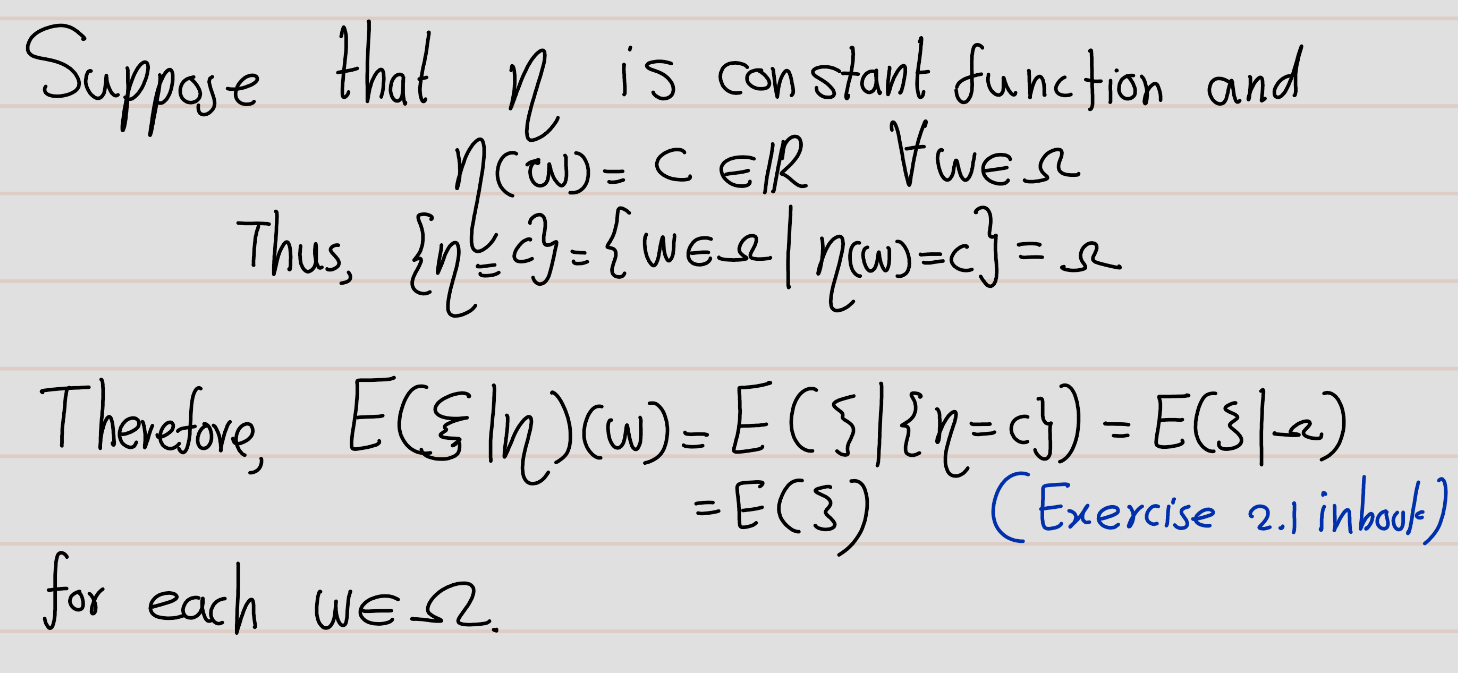 Suppose that η is constant function and
η(ω) = c ∈ ℝ ∀ω∈Ω
Thus, {η=c} = {ω∈Ω | η(ω)=c} = Ω
Therefore, E(ξ|η)(ω) = E(ξ|{η=c}) = E(ξ|Ω)
= E(ξ) (Exercise 2.1 in book)
for each ω∈Ω.